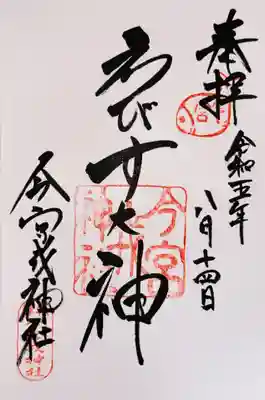 奉拝
令和五年
八月十四日
ゑびす大神
今宮戎神社